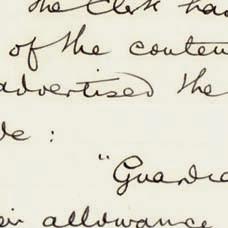 The Clerk had
of the conten
advertised the
de :
"Guardia
eir allowance